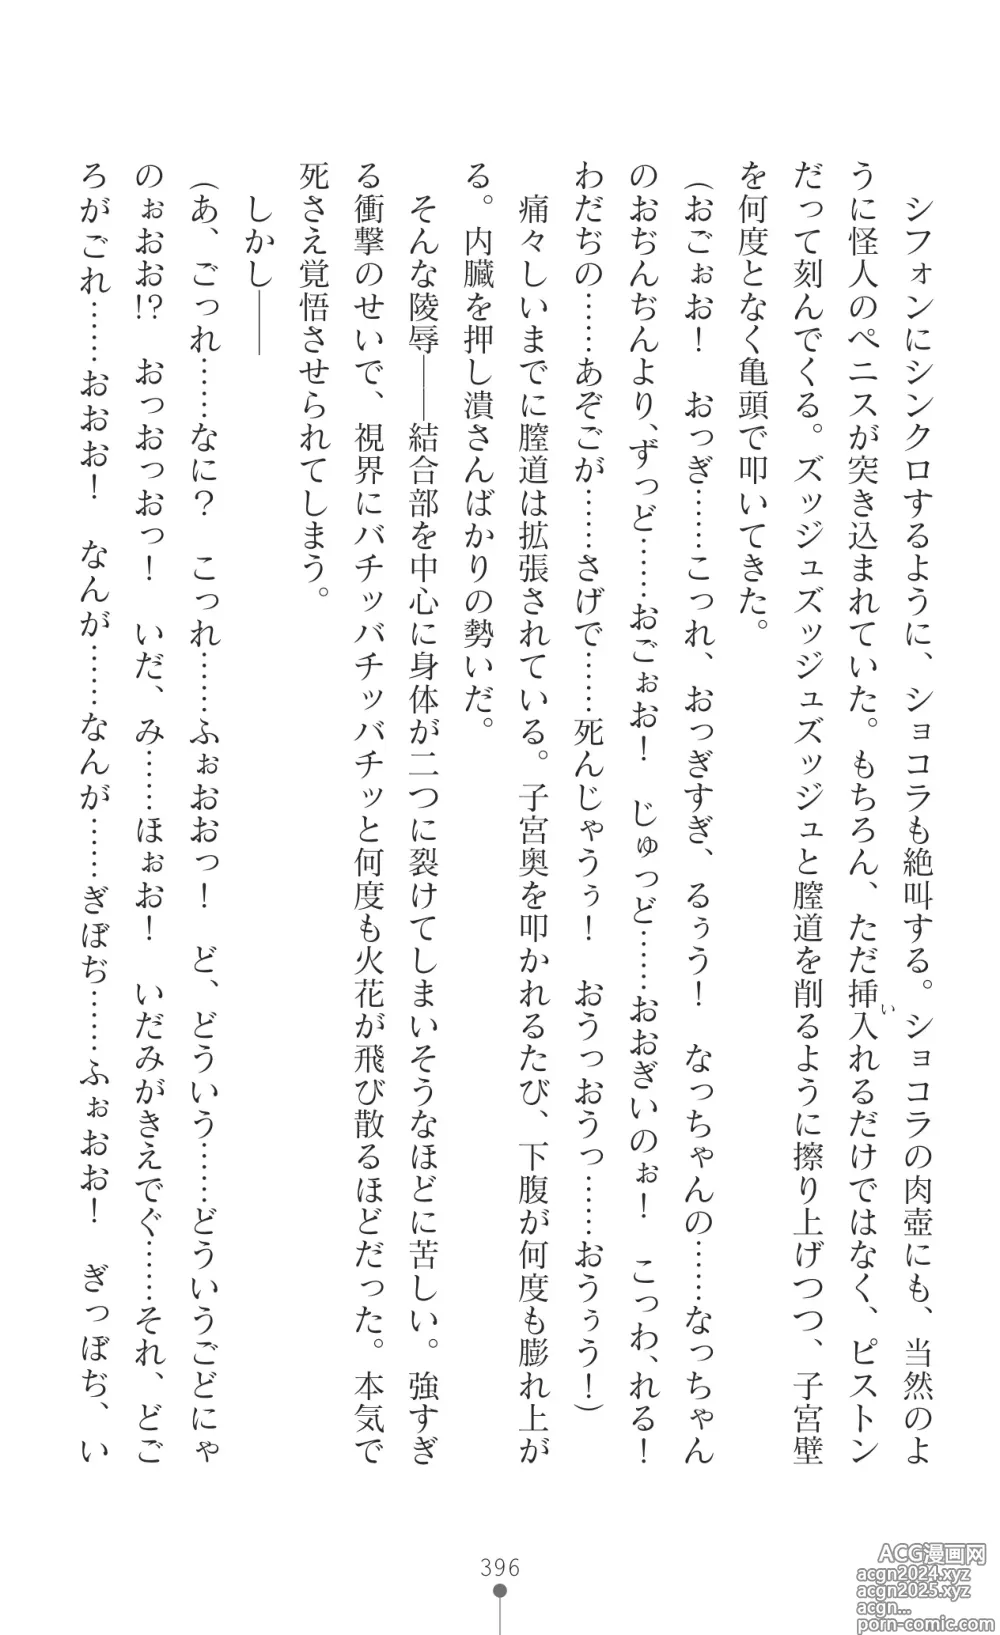 シフォンにシンクロするように、ショコラも絶叫する。ショコラの肉壺にも、当然のよ
うに怪人のペニスが突き込まれていた。もちろん、ただ挿入れるだけではなく、ピストン
だって刻んでくる。ズッジュズッジュズッジュと膣道を削るように擦り上げつつ、子宮壁
を何度となく亀頭で叩いてきた。
(おごぉお!　おっぎ……こっれ、おっぎすぎ、るぅう!　なっちゃんの……なっちゃん
のおぢんぢんより、ずっど……おごぉお!　じゅっど……おおぎいのぉ!　こっわ、れる!
わだぢの……あぞごが……さげで……死んじゃうぅ!　おうっおうっ……おうぅう!)
痛々しいまでに膣道は拡張されている。子宮奥を叩かれるたび、下腹が何度も膨れ上が
る。内臓を押し潰さんばかりの勢いだ。
そんな陵辱――結合部を中心に身体が二つに裂けてしまいそうなほどに苦しい。強すぎ
る衝撃のせいで、視界にバチッバチッバチッと何度も火花が飛び散るほどだった。本気で
死さえ覚悟させられてしまう。
しかし――
(あ、ごっれ……なに?　こっれ……ふぉおおっ!　ど、どういう……どういうごどにゃ
のぉおお!?　おっおっおっ!　いだ、み……ほぉお!　いだみがきえでぐ……それ、どご
ろがごれ……おおお!　なんが……なんが……ぎぼぢ……ふぉおお!　ぎっぼぢ、い
396
ACG漫画网
acgn2024.xyz
acgn2025.xyz
acgn...
porn-comic.com